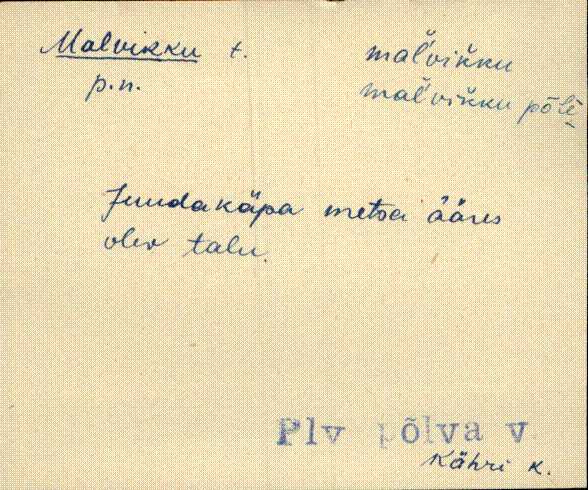 Malvikku t. mal̆vik̆ku
p.n. mal̆vik̆ku põlĭ
Juudakäpa metsa ääres
olev talu.
Plv põlva v
Kähri k.